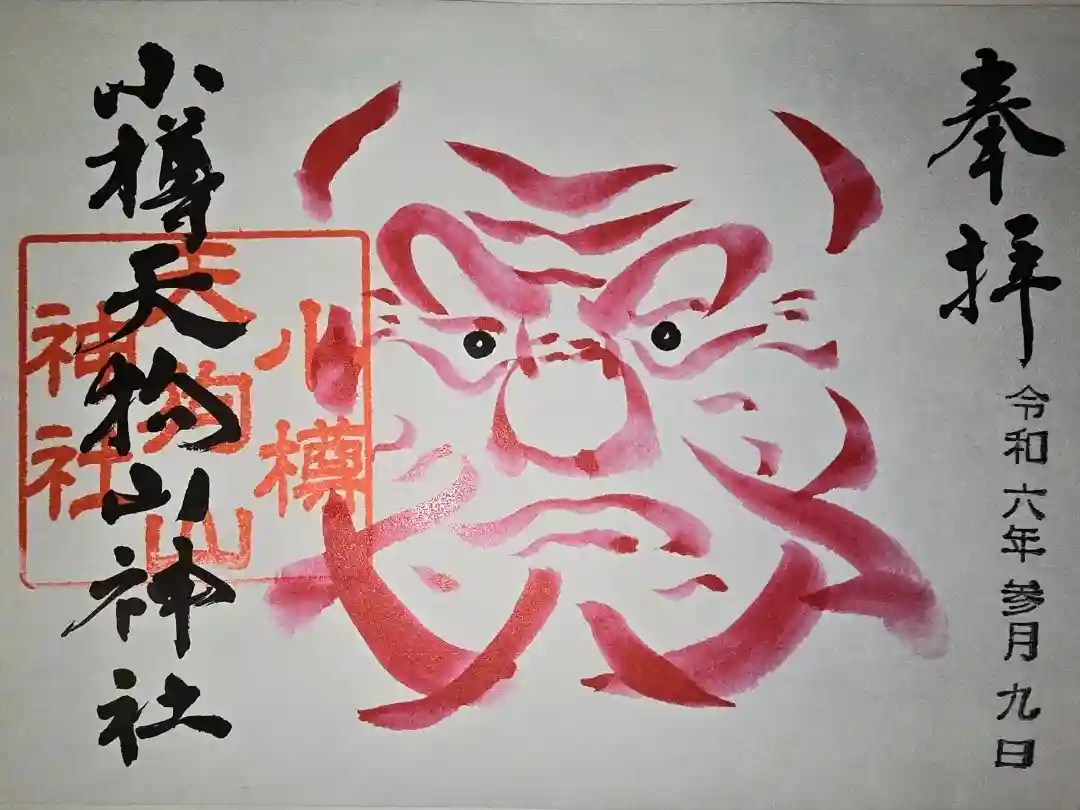 奉拝
令和六年参月九日
小樽天狗山神社
小樽
天狗山
神社